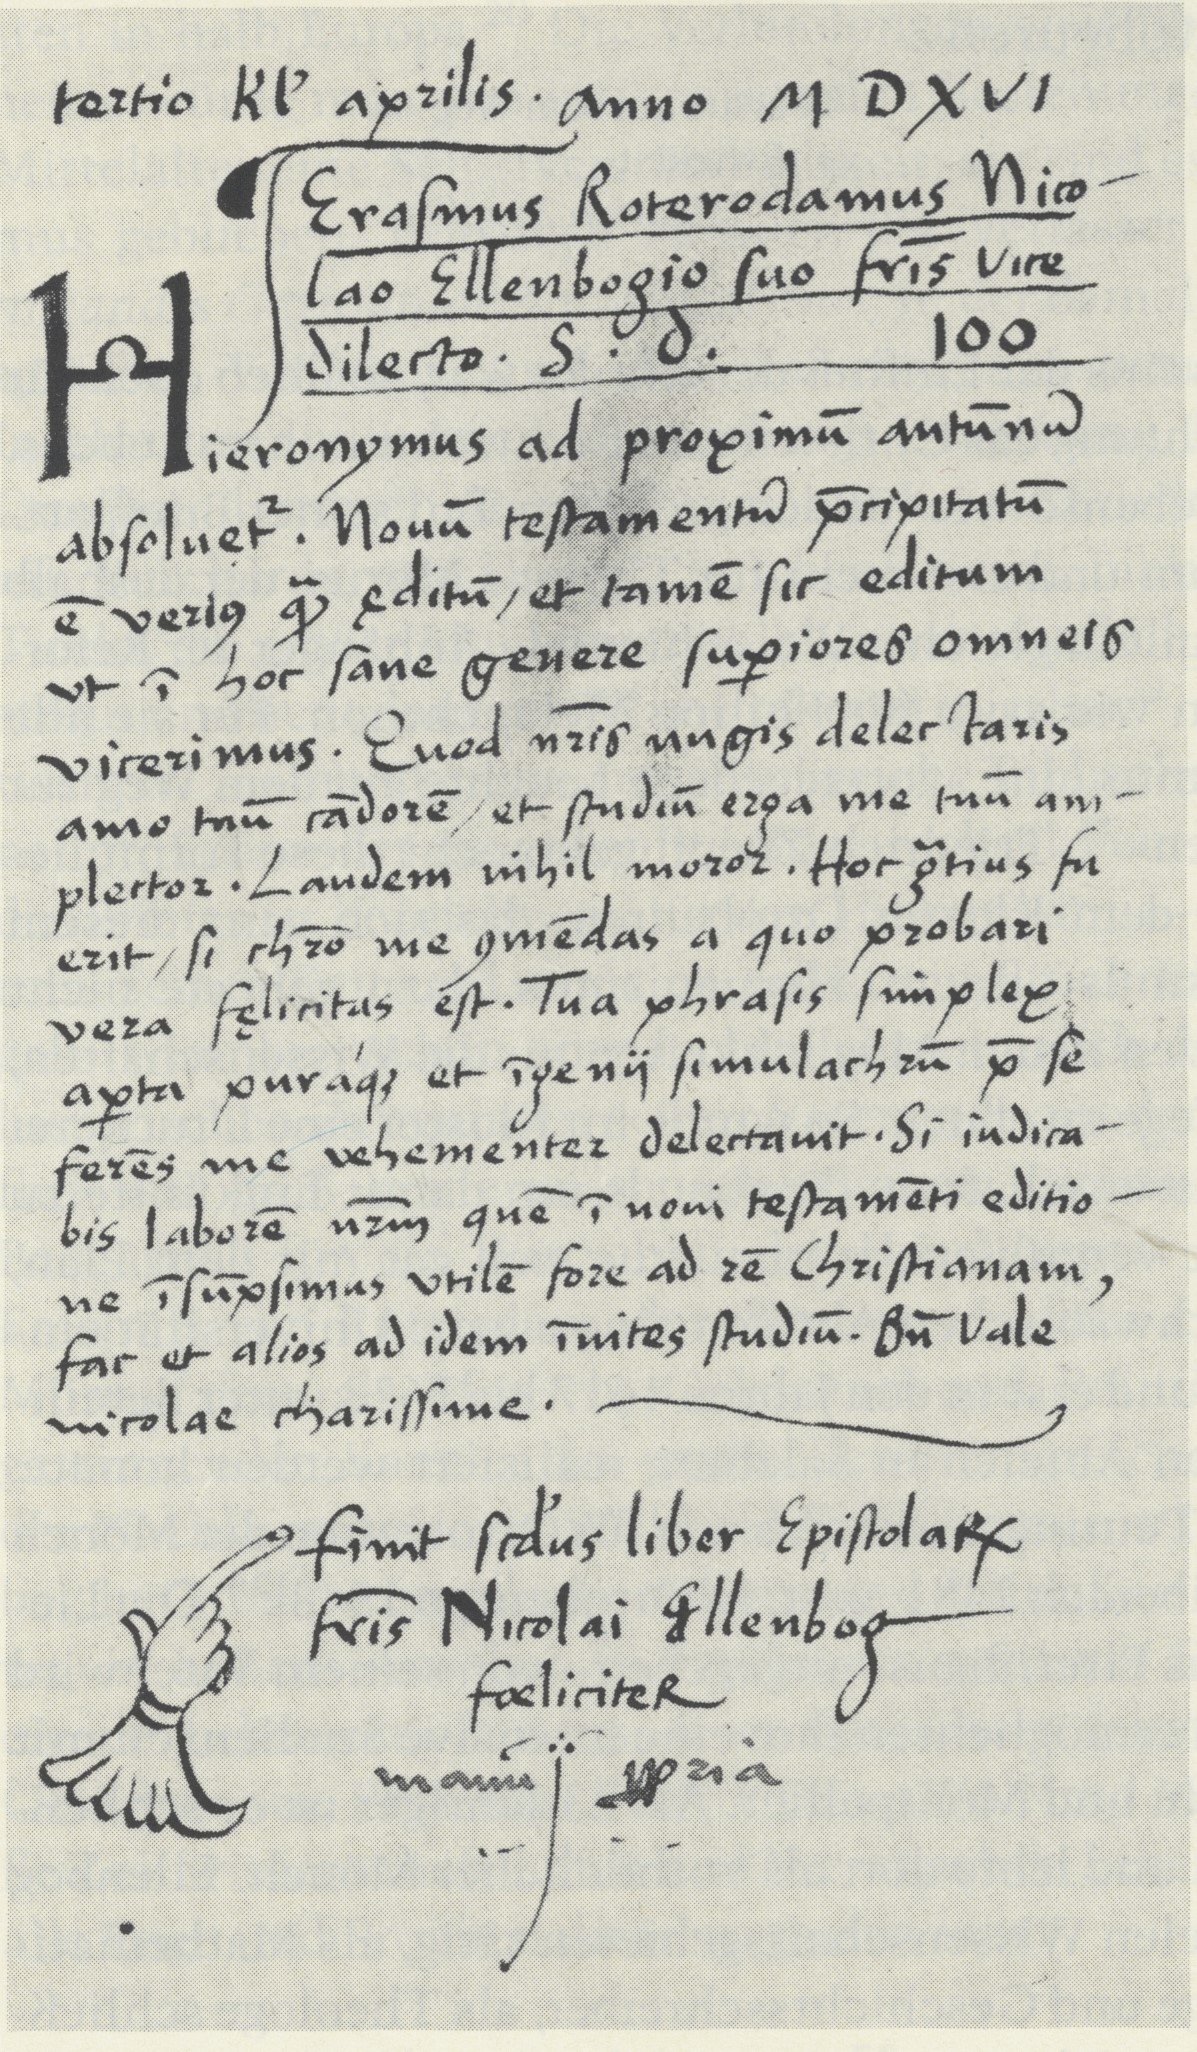 tertio kl' aprilis. Anno M D XVI
Erasmus Roterodamus Nico-
lao Ellenbogio suo fr̄is vice
dilecto. S. d. 100
Hieronymus ad proximū autūnū
absoluet᷑. Nouū testamentū p̄cipitatū
ē veriꝯ qͣ̃ ęditū / et tamē sic editum
vt ī hoc sane genere suꝑiores omneis
vicerimus. Quod nr̄is nugis delectaris
amo tuū cādorē / et studiū erga me tuū am-
plector. Laudem nihil moror. Hoc gͣtius fu
erit / si chr̄o me ꝯmēdas a quo probari
vera fęlicitas est. Tua phrasis simplex
aꝑta puraq́ꝫ et īgenij simulachrū p̄ se
ferēs me vehementer delectauit. Si iudica-
bis laborē nr̄m quē ī noui testamēti editio-
ne īsūpsimus vtilē fore ad rē Christianam,
fac et alios ad idem īuites studiū. Bn̄ vale
nicolae charissime.
finit scd'us liber Epistolaꝝ
fr̄is Nicolai Ellenbog
fœliciteR
manu ꝓpria